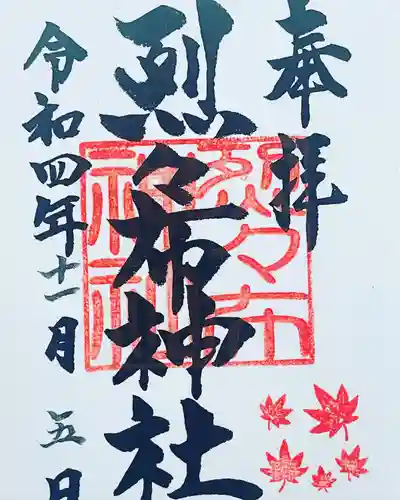 奉拝
烈々布神社
令和四年十一月五日
烈々布
神社